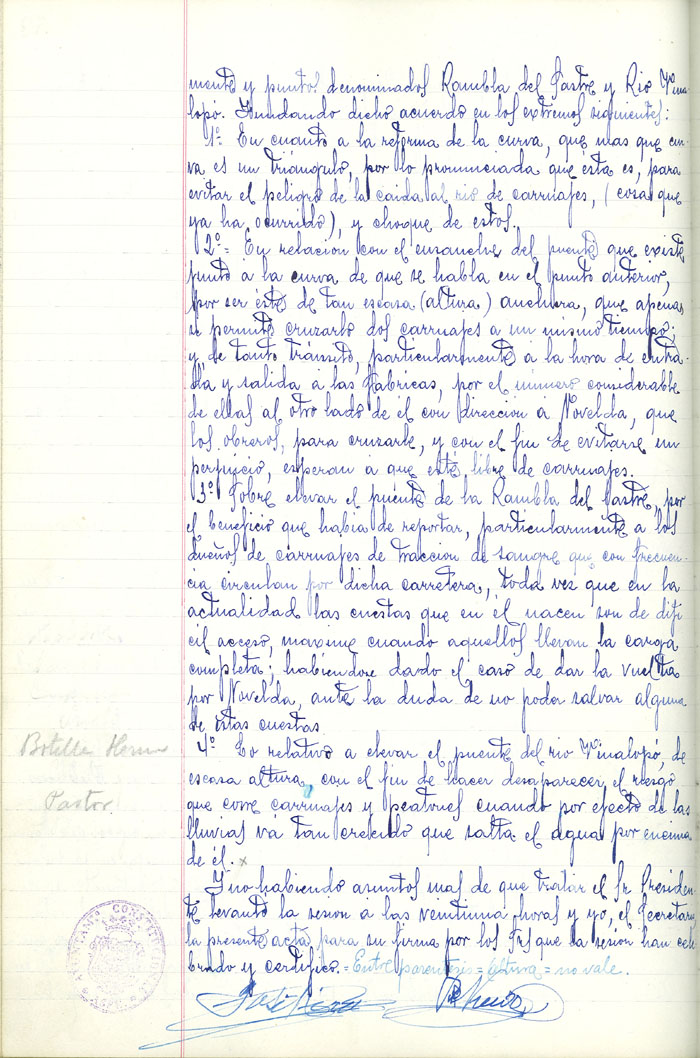 mente y puntos denominados Rambla del Sastre y Rio Vina-
lopó. Fundando dicho acuerdo en los extremos siguientes:
1º. En cuanto a la reforma de la curva, que mas que cur-
va es un triángulo, por lo pronunciada que ésta es, para
evitar el peligro de la caida al rio de carruajes, (cosa que
ya ha ocurrido), y choque de estos.
2º= En relación con el ensanche del puente que existe
junto a la curva de que se habla en el punto anterior,
por ser éste de tan escasa (altura) anchura, que apenas
se permite cruzarlo dos carruajes a un mismo tiempo;
y de tanto tránsito, particularmente a la hora de entra-
da y salida á las fabricas, por el número considerable
de ellas al otro lado de él con direccion á Novelda, que
los obreros, para cruzarle, y con el fin de evitarse un
perjuicio, esperan á que esté libre de carruajes.
3º Sobre elevar el puente de la Rambla del Sastre, por
el beneficio que habia de reportar, particularmente a los
dueños de carruajes de traccion de sangre que con frecuen-
cia circulan por dicha carretera, toda vez que en la
actualidad las cuestas que en él nacen son de difi
cil acceso, maxime cuando aquellos llevan la carga
completa; habiendose dado el caso de dar la vuelta
por Novelda, ante la duda de no poder salvar alguna
de éstas cuestas
4º Lo relativo a elevar el puente del rio Vinalopó, de
escasa altura con el fin de hacer desaparecer el riesgo
que corre carruajes y peatones cuando por efecto de las
lluvias vá tan crecido que salta el agua por encima
de él. x
Y no habiendo asuntos mas de que tratar el Sr. Presiden-
te levantó la sesion a las veintiuna horas y yo, el Secretario
la presente acta para su firma por los Srs que la sesion han cele
brado y certifico.=Entre parentesis=altura=no vale.
Botella Herm
Pastor
AYUNTAMTO CONSTITUCIONAL